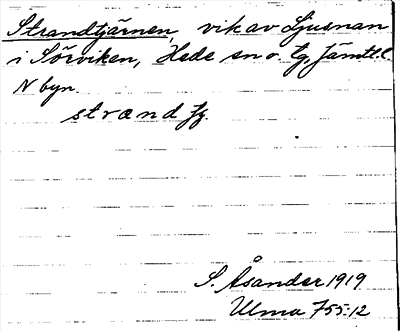 Strandtjärnen, vik av Ljusnan
i Sörviken, Hede sn o. tg, Jämtl. l.
N byn.
strand tj.
S. Åsander 1919
Ulma 755:12